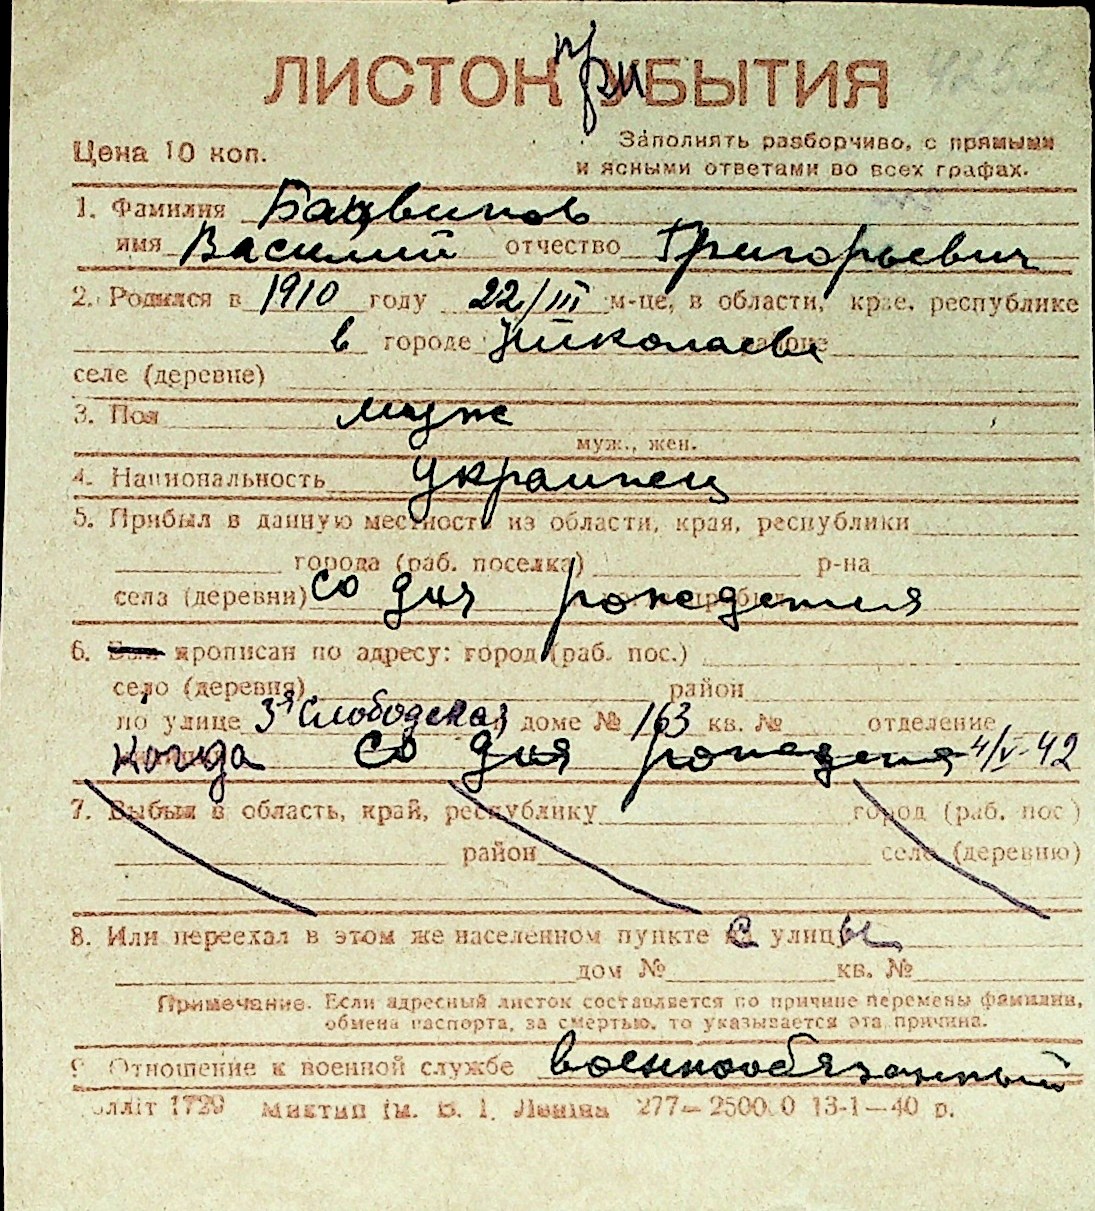 ЛИСТОК при УБЫТИЯ
Цена 10 коп.
Заполнять разборчиво, с прямыми
и ясными ответами во всех графах.
1. Фамилия
имя Василий отчество Григорьевич
2. Родился в 1910 году 22/III м-це, в области, крае, республике
в городе Николаеве районе
селе (деревне)
3. Пол муж
муж., жен.
4. Национальность Украинец
5. Прибыл в данную местность из области, края, республики
города (раб. поселка) р-на
села (деревни) со дня рождения
6. Был прописан по адресу: город (раб. пос.)
село (деревня) район
по улице 3я Слободская доме № 163 кв. № отделение
когда со дня рождения 4/V-42
7. Выбыл в область, край, республику город (раб. пос.)
район село (деревню)
8. Или переехал в этом же населенном пункте с улицы
дом № кв. №
Примечание. Если адресный листок составляется по причине перемены фамилии,
обмена паспорта, за смертью, то указывается эта причина.
9. Отношение к военной службе военнообязанный
Миктип ім. В. І. Леніна 277—2500.0 13-1—40 р.